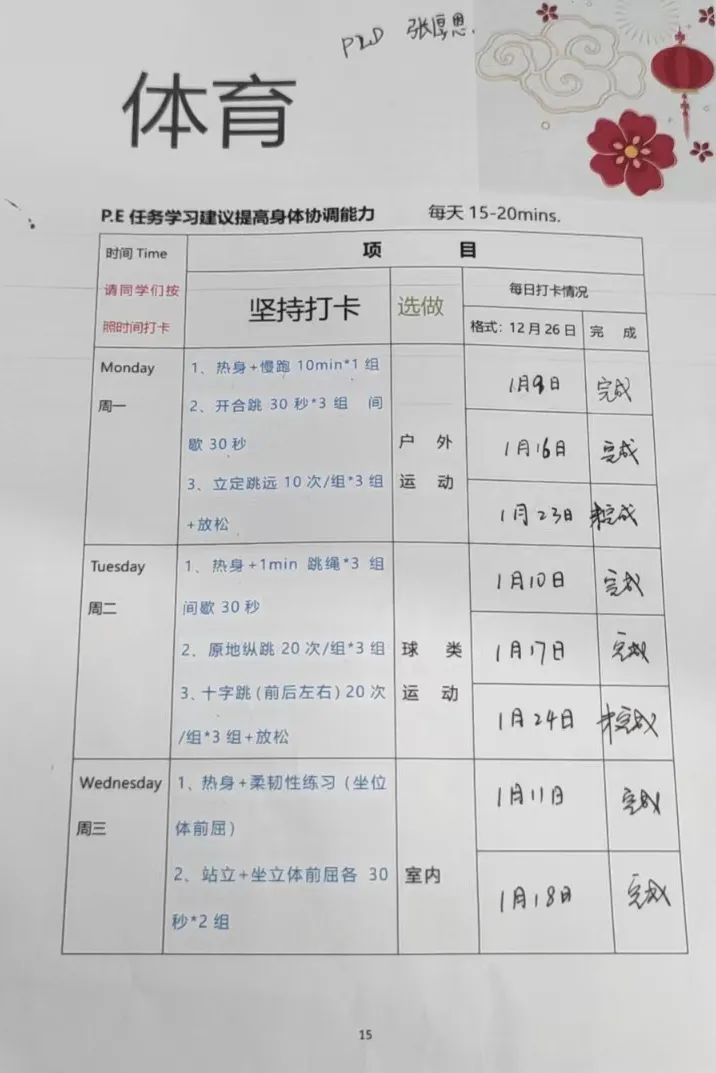 P2D 张厚恩
体育
P.E 任务学习建议提高身体协调能力 每天 15-20mins.
时间 Time
请同学们按
照时间打卡
项 目
坚持打卡
选做
每日打卡情况
格式: 12 月 26 日
完 成
Monday
周一
1、热身+慢跑 10min*1 组
2、开合跳 30 秒*3 组 间
歇 30 秒
3、立定跳远 10 次/组*3 组
+放松
户 外
运 动
1月9日 完成
1月16日 完成
1月23日 未完成
Tuesday
周二
1、热身+1min 跳绳*3 组
间歇 30 秒
2、原地纵跳 20 次/组*3 组
3、十字跳(前后左右)20 次
/组*3 组+放松
球 类
运 动
1月10日 完成
1月17日 完成
1月24日 未完成
Wednesday
周三
1、热身+柔韧性练习(坐位
体前屈)
2、站立+坐立体前屈各 30
秒*2 组
室内
1月11日 完成
1月18日 完成
15